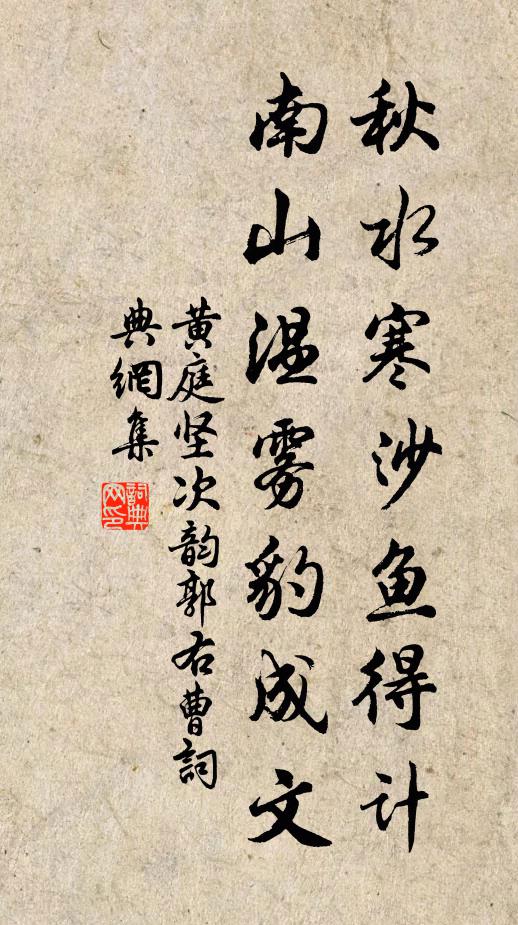 秋水寒沙鱼得计
南山温雾豹成文
黄庭坚次韵郭右曹词
典網集
詞典
网印